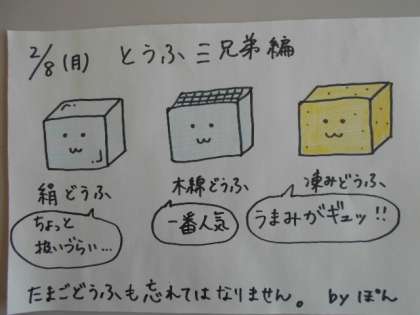 2/8(月) とうふ三兄弟編
絹どうふ
木綿どうふ
凍みどうふ
ちょっと
扱いづらい…
一番人気
うまみがギュッ!!
たまごどうふも忘れてはなりません。 by ぽん